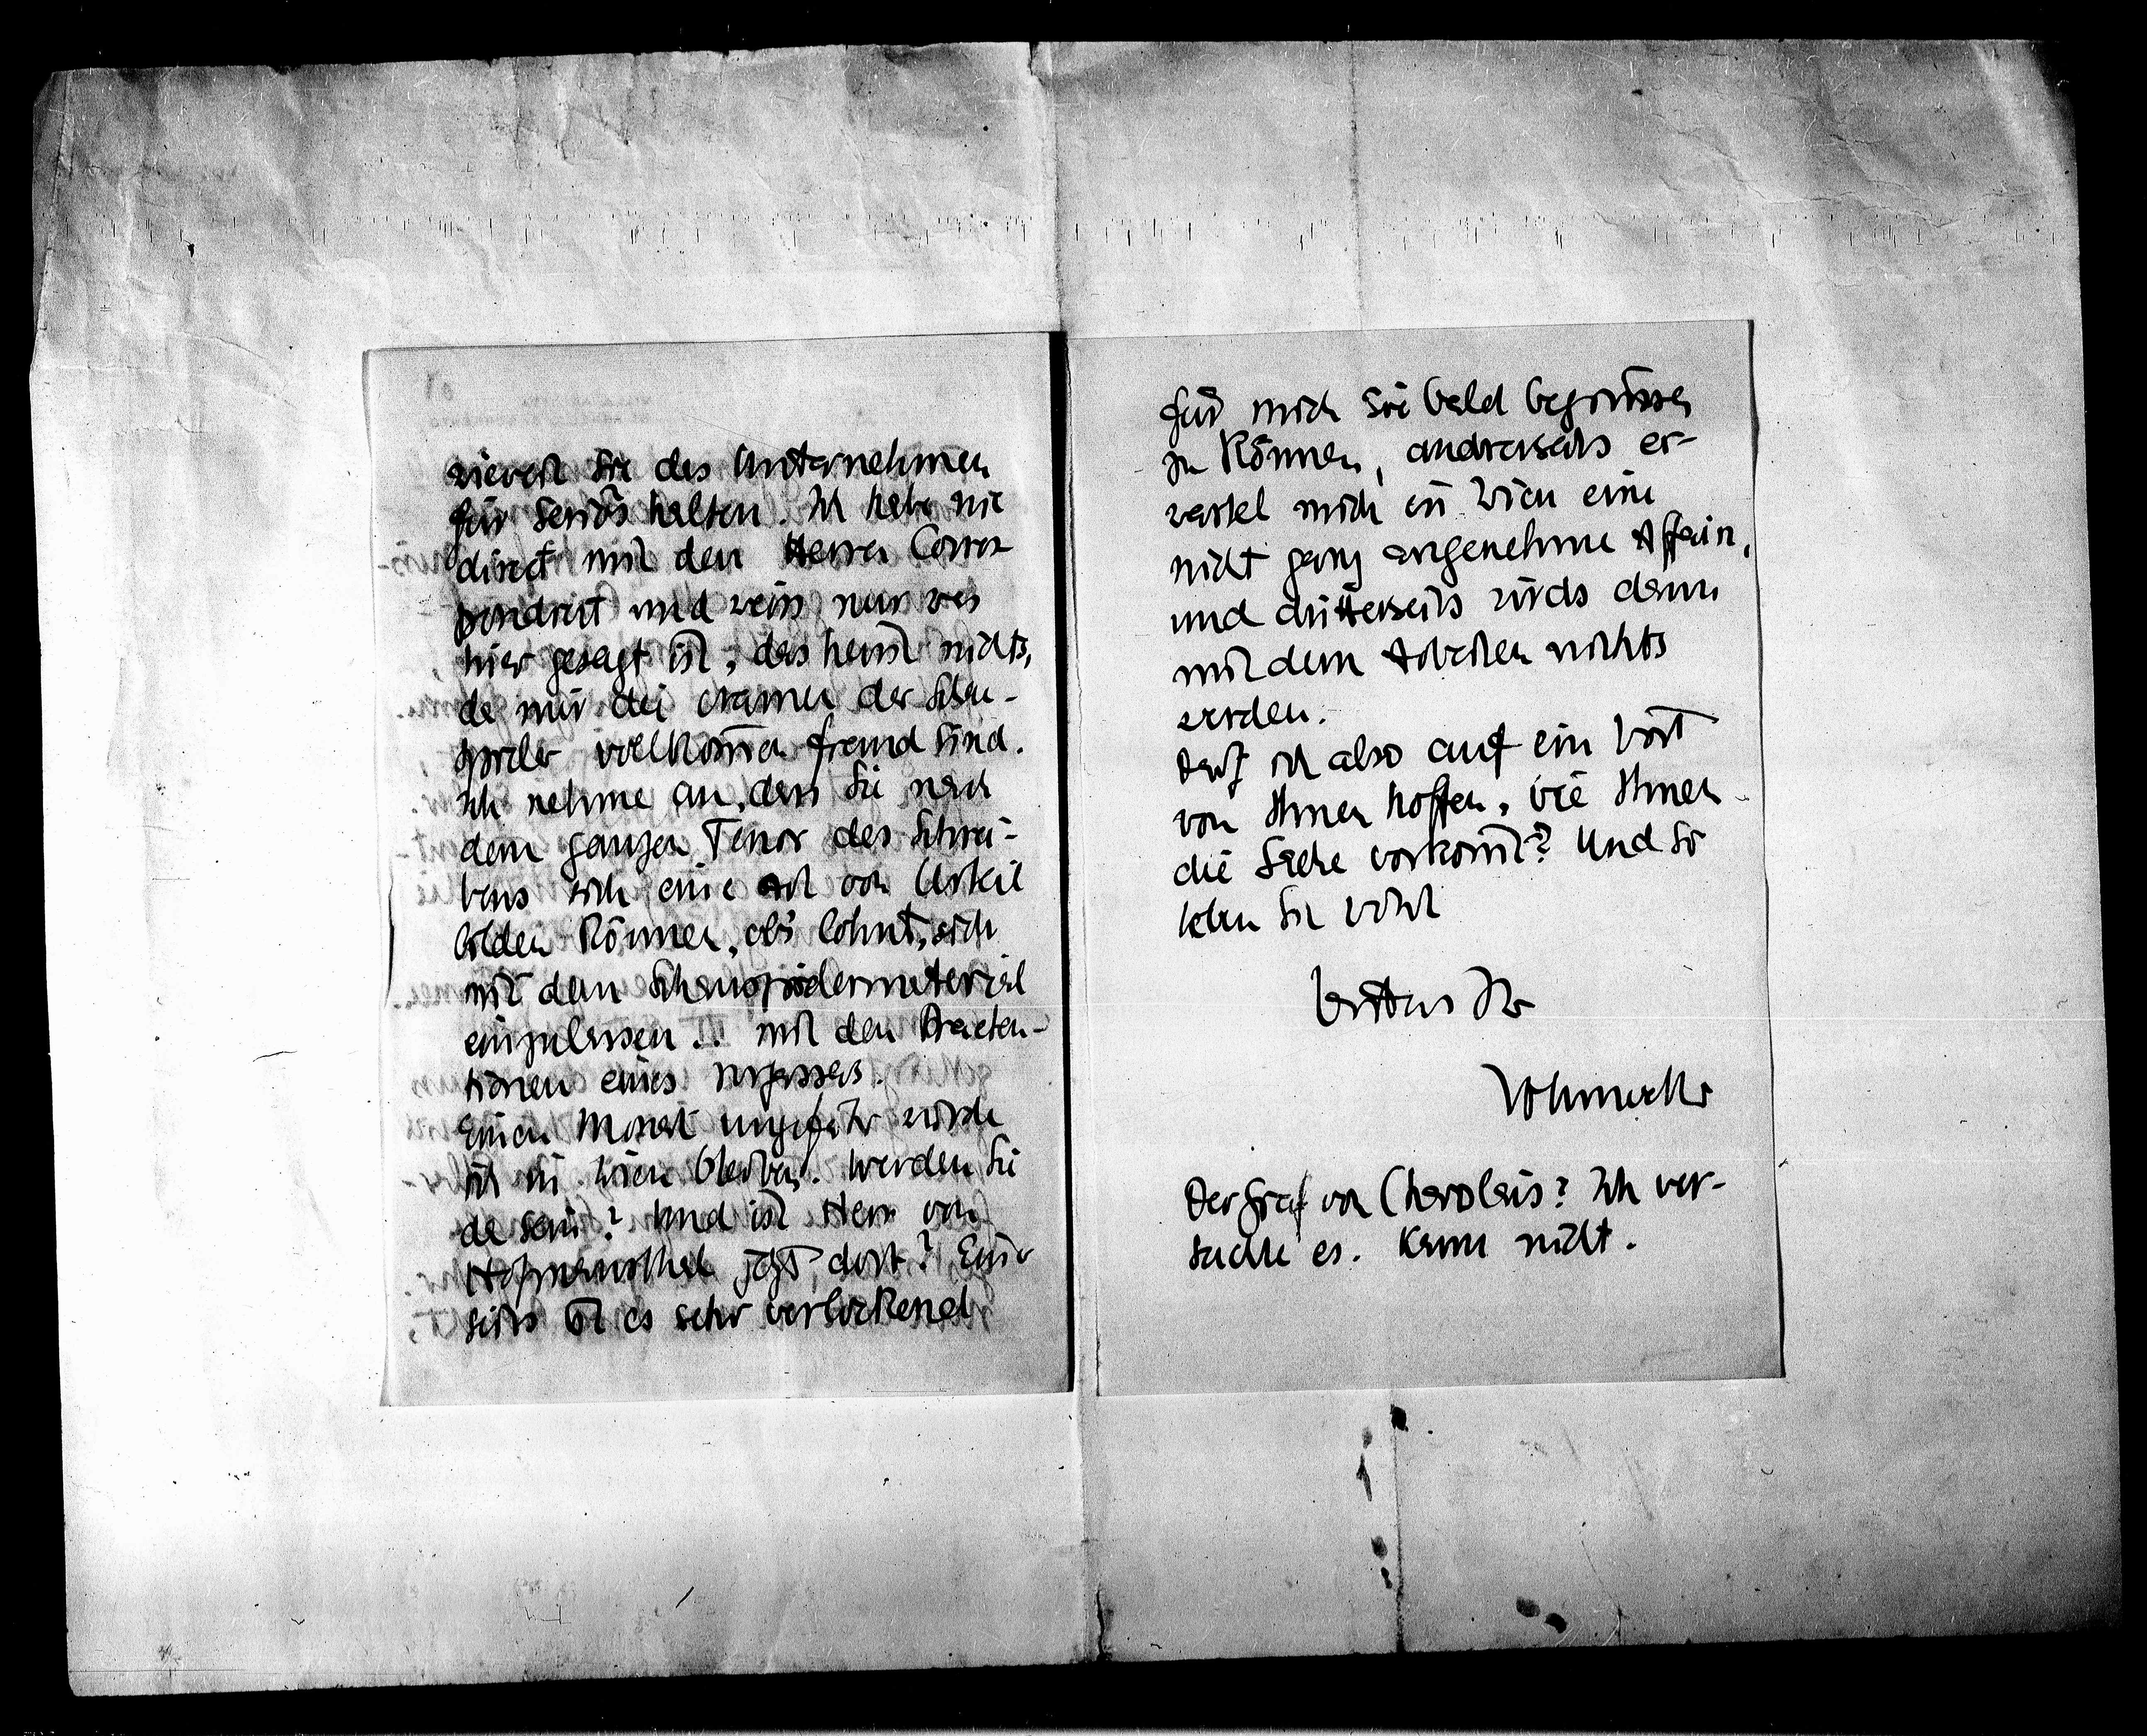 wieweit Sie das Unternehmen
für seriös halten. Ich habe nie
direct mit den Herren Corres
pondirt und weiss nur was
hier gesagt ist, das heisst nichts,
da mir die Namen der Schau-
spieler vollkom̄en fremd sind.
Ich nehme an, dass Sie nach
dem ganzen Tenor des Schrei-
bens sich eine Art von Urteil
bilden können, ob's lohnt, sich
mit dem Schauspielermaterial
einzulassen .. mit den Praeten-
tionen eines
Einen Monat ungefähr würde
ich in Wien bleiben. Werden Sie
da sein? Und ist Herr von
Hofmannsthal jetzt dort? Einer
seits ist es sehr verlockend
für mich Sie bald begrüssen
zu können, andrerseits er-
wartet mich in Wien eine
nicht ganz angenehme Affaire,
und dritterseits wirds dann
mit dem Arbeiten nichts
werden.
Darf ich also auf ein Wort
von Ihnen hoffen, wie Ihnen
die Sache vorkom̄t? Und so
leben Sie wohl
bestens Ihr
Vollmoeller
Der Graf von Charolais? Ich ver-
suchte es. Kann nicht.